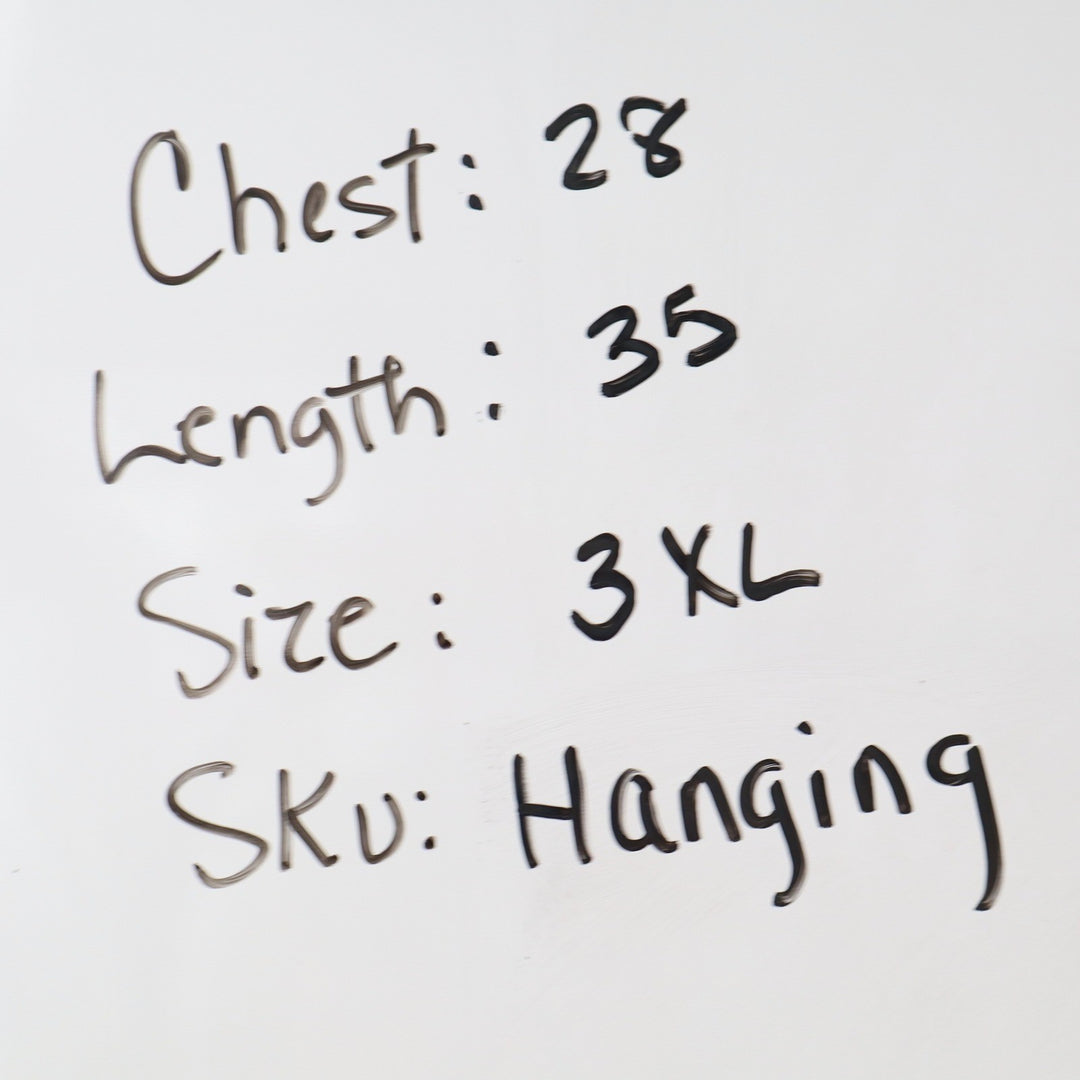 Chest: 28
Length: 35
Size: 3XL
SKU: Hanging